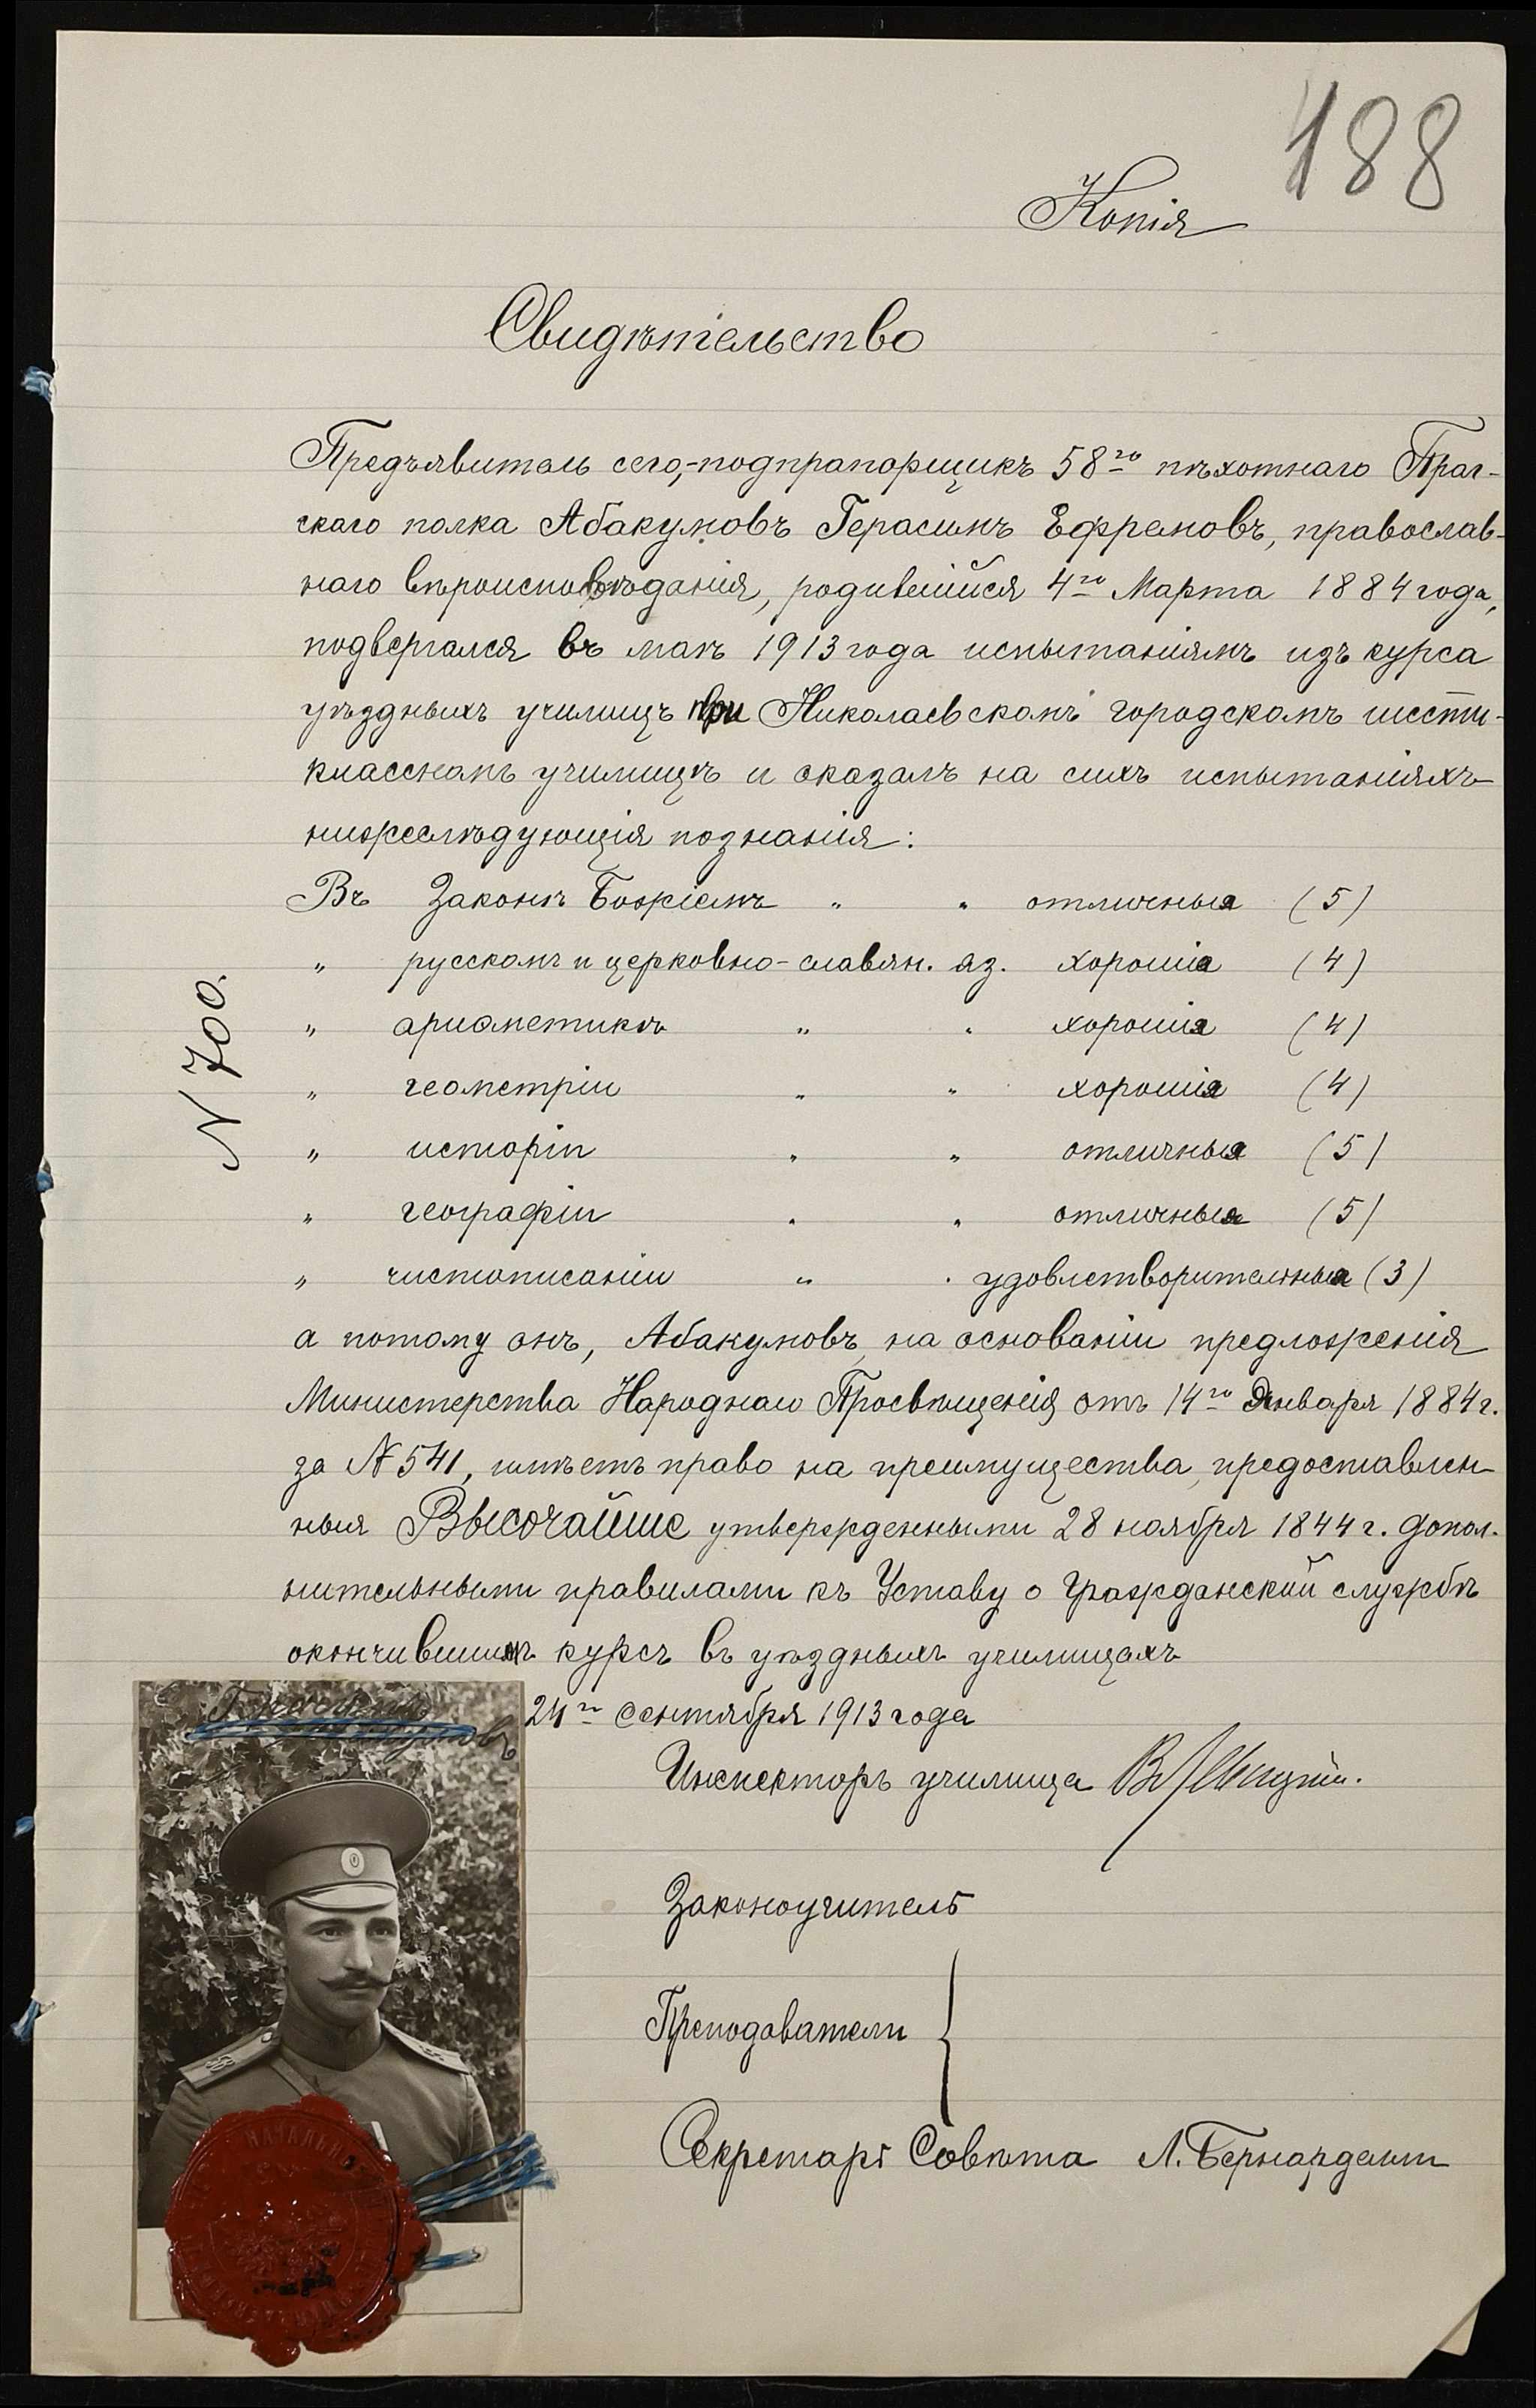 188
Копія
Свидѣтельство
Предъявитель сего,-подпрапорщикъ 58го пѣхотнаго Праг-
скаго полка Абакумовъ Герасимъ Ефремовъ, православ-
наго вѣроисповѣданія, родившійся 4го Марта 1884 года,
подвергался въ маѣ 1913 года испытаніямъ изъ курса
уѣздныхъ училищъ при Николаевскомъ городскомъ шести-
классномъ училищѣ и оказалъ на сихъ испытаніяхъ
нижеслѣдующія познанія:
Въ Законѣ Божіемъ " " отличныя (5)
" русскомъ и церковно-славян. яз. хорошія (4)
" ариѳметикѣ " " хорошія (4)
" геометріи " " хорошія (4)
" исторіи " " отличныя (5)
" географіи " " отличныя (5)
" чистописаніи " " удовлетворительныя (3)
N 700.
а потому онъ, Абакумовъ, на основаніи предложенія
Министерства Народнаго Просвѣщенія отъ 14го Января 1884 г.
за N 541, имѣетъ право на преимущества, предоставлен-
ныя Высочайше утвержденными 28 ноября 1844 г. допол-
нительными правилами къ Уставу о Гражданской службѣ
окончившимъ курсъ въ уѣздныхъ училищахъ
24го Сентября 1913 года
Инспекторъ училища
Законоучитель
Преподаватели
Секретарь Совѣта Л. Бернардели